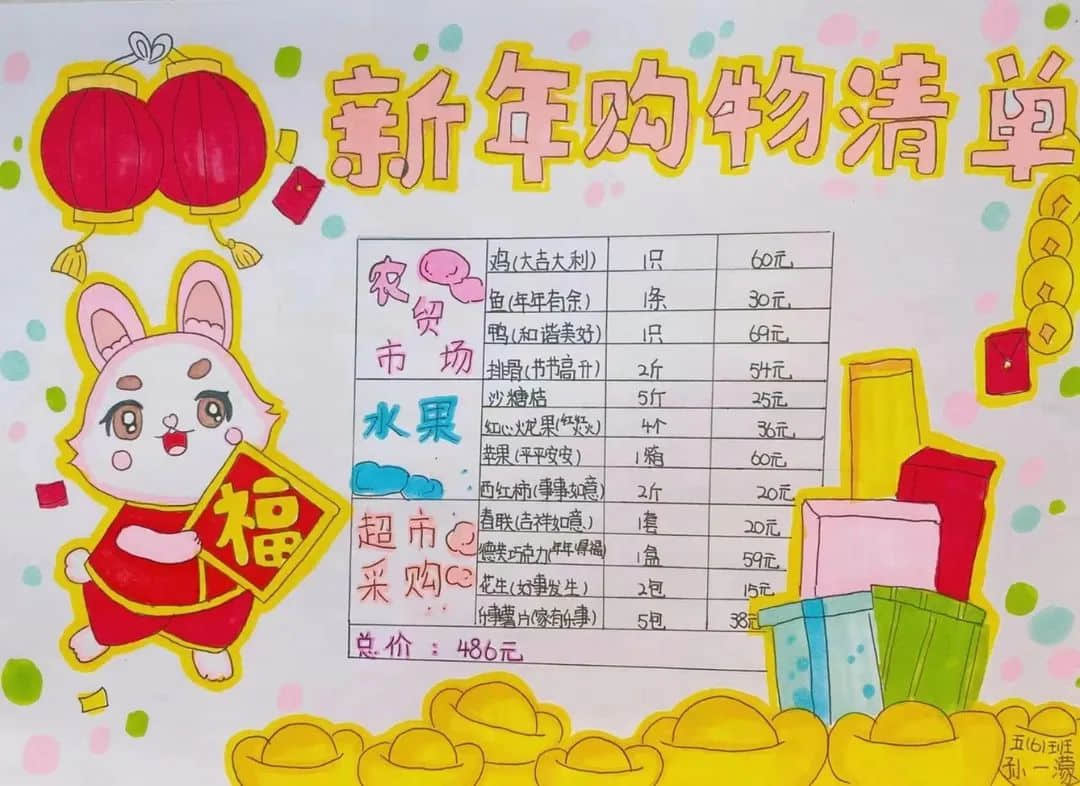 新年购物清单
福
农贸市场
鸡(大吉大利) 1只 60元
鱼(年年有余) 1条 30元
鸭(和谐美好) 1只 69元
排骨(节节高升) 2斤 54元
水果
沙糖桔 5斤 25元
红心火龙果(红红火火) 4个 36元
苹果(平平安安) 1箱 60元
西红柿(事事如意) 2斤 20元
超市采购
春联(吉祥如意) 1套 20元
德芙巧克力(年年得福) 1盒 59元
花生(好事发生) 2包 15元
乐事薯片(家有乐事) 5包 38元
总价：486元
五(6)班
孙一濛